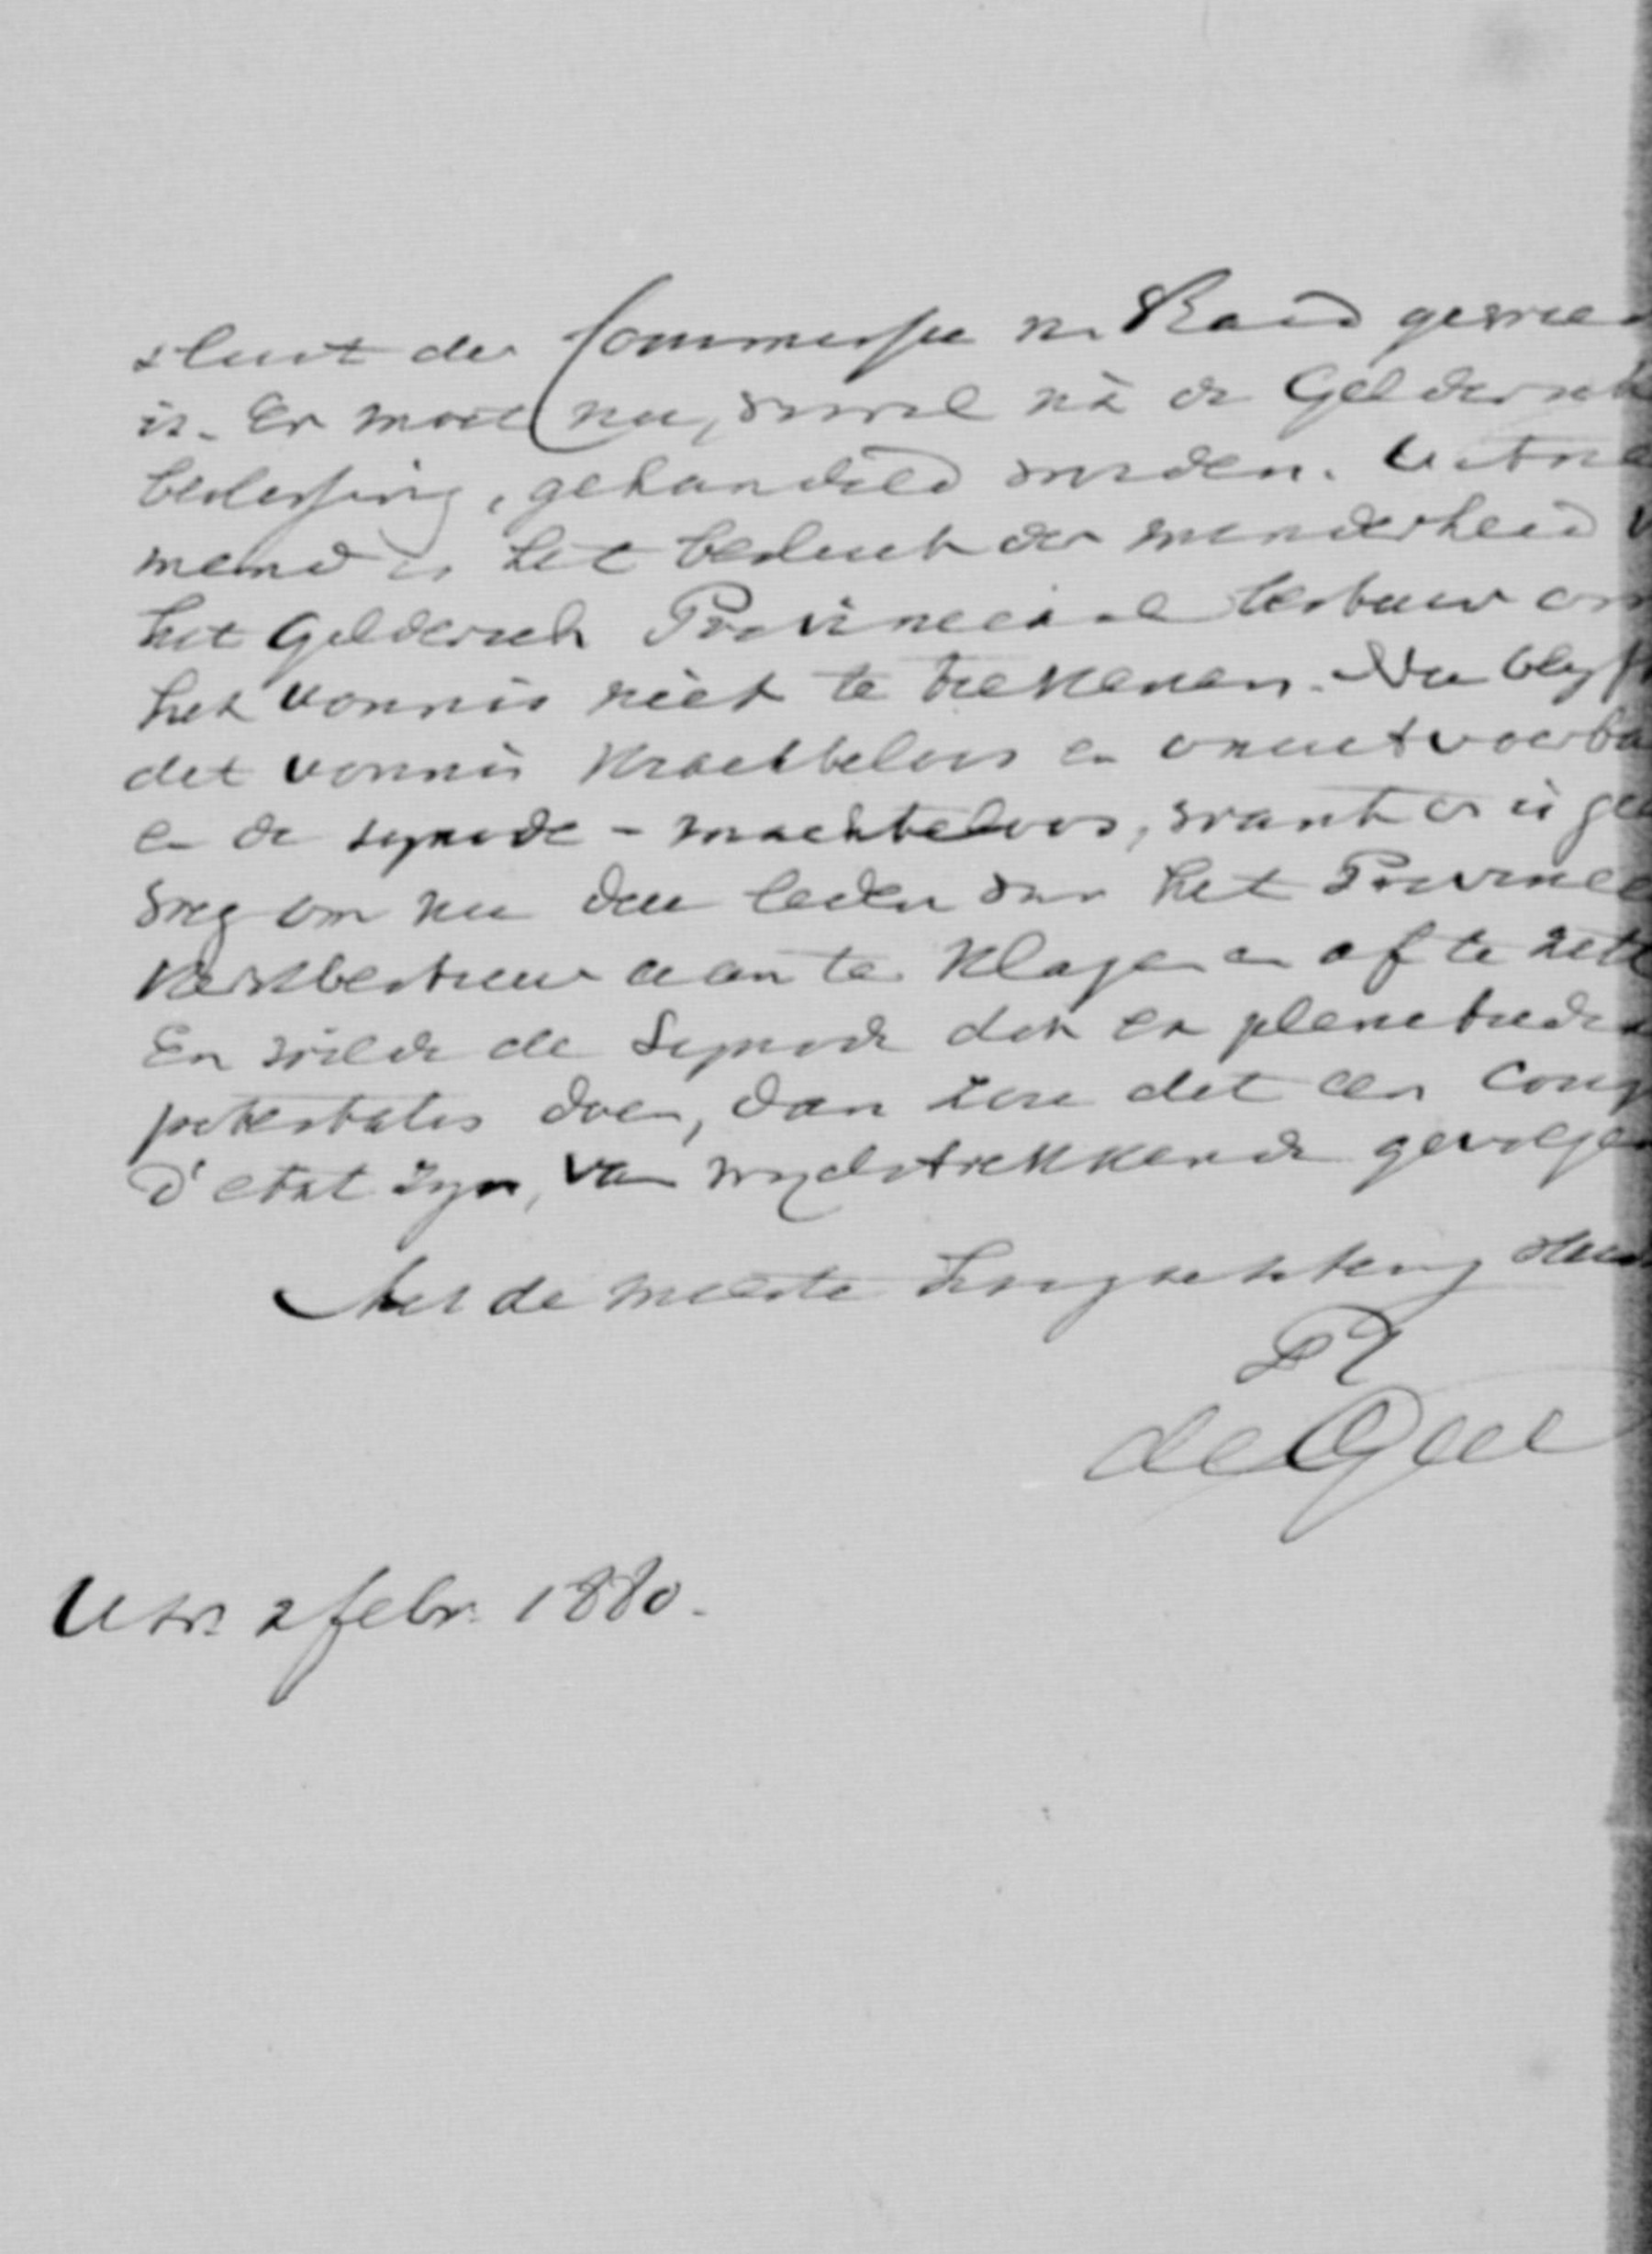 sluit der Commissie
is. Er moet nu, vooral nà de Geldersch
beslissing, gehandeld worden. Uitne
mend is het besluit der minderheid v
het Geldersch Provinciaal bestuur om
het vonnis niet te teekenen. Nu blyf
dit vonnis krachteloos en onuitvoerba
en de synode - machteloos, want er is gee
weg om nu drie leden van het Provincia
Kerkbestuur aan te klagen en af te zett
En wilde de Synode dit ex plenitudin
potestatis doen, dan zou dit een Coup
d'etat zyn, van wydstrekkende gevolgen
Met de meeste Hoogachting
de Geer
Utr. 2 febr. 1880.